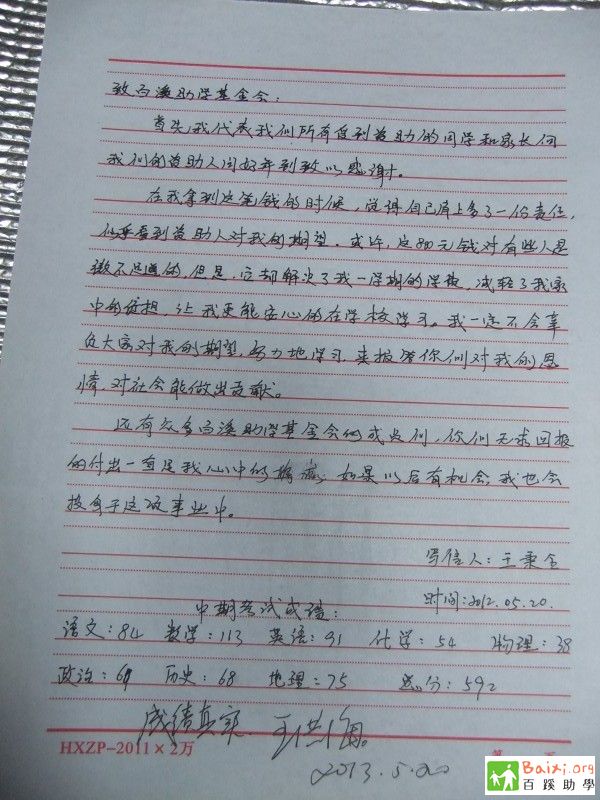 致百溪助学基金会:
首先,我代表我们所有受到资助的同学和家长向
我们的资助人周好年到致以感谢。
在我拿到这笔钱的时候,觉得自己肩上多了一份责任,
似乎看到资助人对我的期望。或许,这800元钱对有些人是
微不足道的,但是,它却解决了我一学期的学费,减轻了我家
中的负担,让我更能安心的在学校学习。我一定不会辜
负大家对我的期望,努力地学习,来报答你们对我的恩
情,对社会能做出贡献。
还有众多百溪助学基金会的成员们,你们无求回报
的付出一直是我心中的榜样,如果以后有机会,我也会
投身于这项事业中。
写信人:王秉
时间:2012.05.20.
中期考试成绩:
语文:84 数学:113 英语:91 化学:54 物理:38
政治:69 历史:68 地理:75 总分:592
成绩真实
2013.5.20
HXZP-2011×2万
Baixi.org
百蹊助學